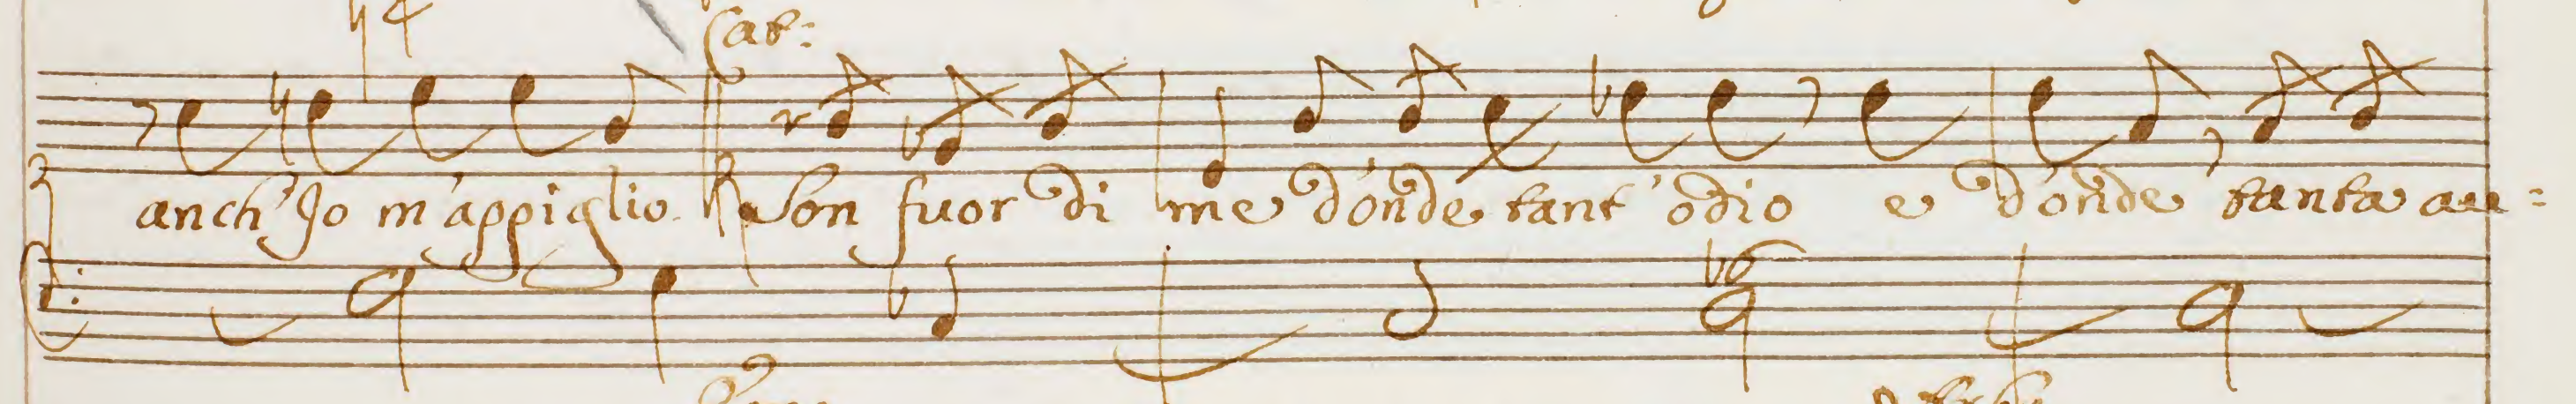 Cat:
anch' Jo m'appiglio. Son fuor di me dónde tant' odio e dónde tanta au=
b6